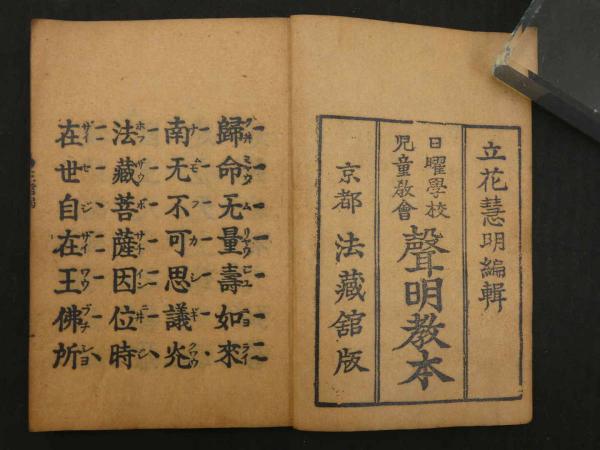 立花慧明編輯
日曜學校
兒童敎會
聲明教本
京都 法藏舘版
歸命无量壽如來
南无不可思議光
法藏菩薩因位時
在世自在王佛所